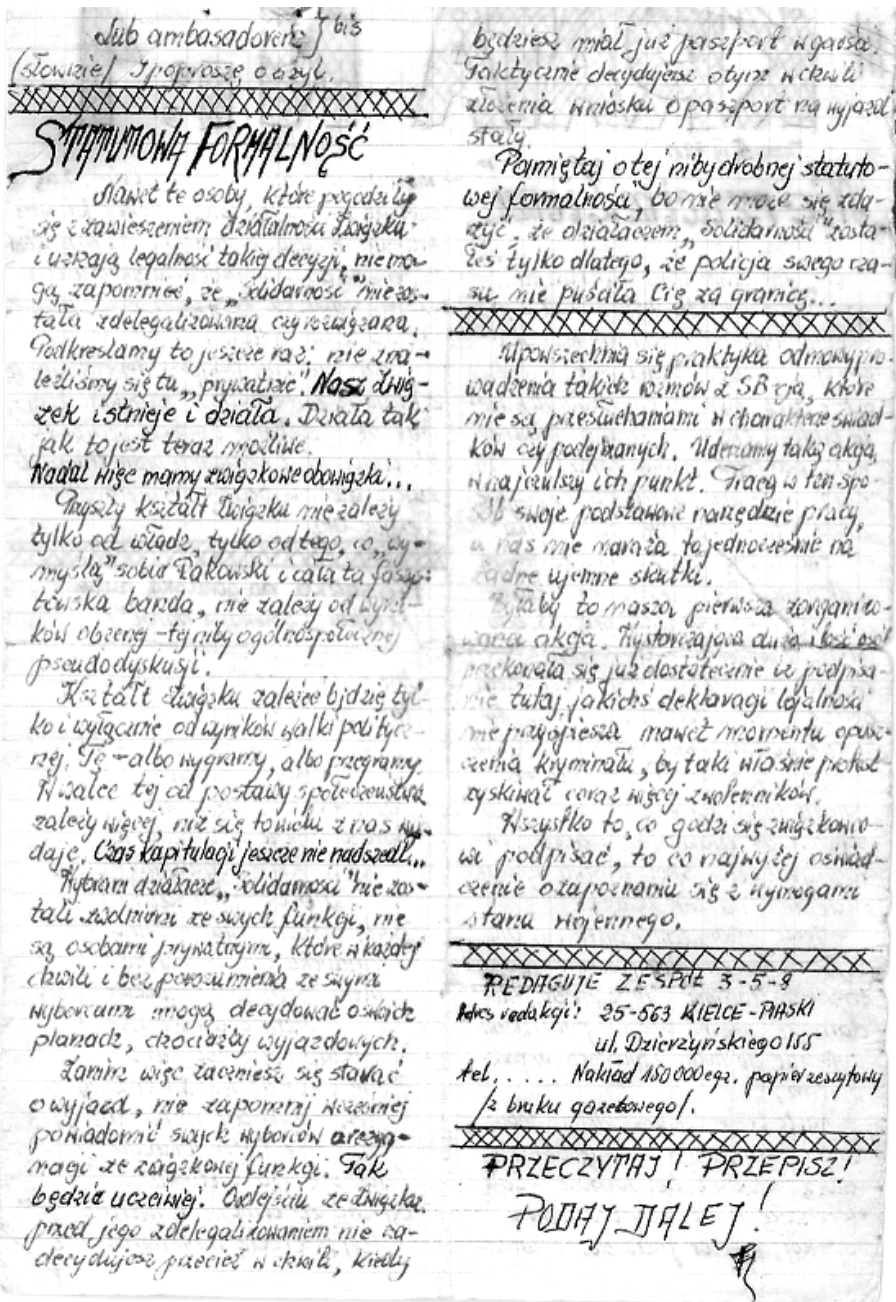 Lub ambasadorem] bis
(słownie/ I poproszę o azyl.
STATUTOWA FORMALNOŚĆ
Nawet te osoby, które pogodziły
się z zawieszeniem działalności Związku
i uznają legalność takiej decyzji, nie mo-
gą zapomnieć, że „Solidarność" nie zos-
tała zdelegalizowana czy rozwiązana.
Podkreślamy to jeszcze raz: nie zna-
leźliśmy się tu „prywatnie". Nasz Zwią-
zek istnieje i działa. Działa tak
jak to jest teraz możliwe.
Nadal więc mamy związkowe obowiązki...
Przyszły kształt Związku nie zależy
tylko od władz, tylko od tego, co „wy-
myślą" sobie Rakowski i cała ta faszy-
towska banda, nie zależy od wyni-
ków obecnej - tej niby ogólnospołecznej
pseudodyskusji.
Kształt Związku zależeć będzie tyl-
ko i wyłącznie od wyników walki politycz-
nej. Tę - albo wygramy, albo przegramy.
W walce tej od postawy społeczeństwa
zależy więcej, niż się to wielu z nas wy-
daje. Czas kapitulacji jeszcze nie nadszedł...
Wybrani działacze „Solidarności" nie zos-
tali zwolnieni ze swych funkcji, nie
są osobami prywatnymi, które w każdej
chwili i bez porozumienia ze swymi
wyborcami mogą decydować o swoich
planach, chociażby wyjazdowych.
Zanim więc zaczniesz się starać
o wyjazd, nie zapomnij wcześniej
powiadomić swych wyborców o rezyg-
nacji ze związkowej funkcji. Tak
będzie uczciwiej. O odejściu ze Związku
przed jego zdelegalizowaniem nie za-
decydujesz przecież w chwili, kiedy
będziesz miał już paszport w garści.
Faktycznie decydujesz o tym w chwili
złożenia wniosku o paszport na wyjazd
stały.
Pamiętaj o tej niby drobnej statuto-
wej formalności, bo nie może się zda-
rzyć, że działaczem „Solidarności" zosta-
łeś tylko dlatego, że policja swego cza-
su nie puściła Cię za granicę...
Upowszechnia się praktyka odmowy pro-
wadzenia takich rozmów z SB-cją, które
nie są przesłuchaniami w charakterze świad-
ków czy podejrzanych. Uderzamy taką akcją
w najczulszy ich punkt. Tracą w ten spo-
sób swoje podstawowe narzędzie pracy,
a nas nie naraża to jednocześnie na
żadne ujemne skutki.
Byłaby to nasza pierwsza zorganizo-
wana akcja. Wystarczająco duża ilość osób
przekonała się już dostatecznie iż podpisa-
nie tutaj jakichś deklaracji lojalności
nie przyspiesza nawet momentu opusz-
czenia kryminału, by taki właśnie protest
zyskiwał coraz więcej zwolenników.
Wszystko to, co godzi się związkowco-
wi podpisać, to co najwyżej oświad-
czenie o zapoznaniu się z wymogami
stanu wojennego.
REDAGUJE ZESPÓŁ 3-5-8
Adres redakcji: 25-563 KIELCE-PIASKI
ul. Dzierżyńskiego 155
tel. .... Nakład 150000 egz. papier zeszytowy
/z braku gazetowego/.
PRZECZYTAJ! PRZEPISZ!
PODAJ DALEJ!